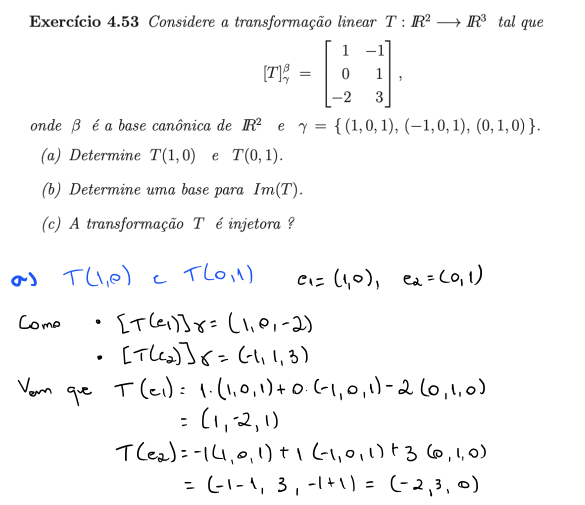 Exercício 4.53 Considere a transformação linear T : ℝ² ⟶ ℝ³ tal que
[T]^β_γ = [ 1 −1 ; 0 1 ; −2 3 ] ,
onde β é a base canônica de ℝ² e γ = { (1, 0, 1), (−1, 0, 1), (0, 1, 0) }.
(a) Determine T(1, 0) e T(0, 1).
(b) Determine uma base para Im(T).
(c) A transformação T é injetora ?
a) T(1,0) e T(0,1) e₁ = (1,0), e₂ = (0,1)
Como • [T(e₁)]γ = (1, 0, -2)
• [T(e₂)]γ = (-1, 1, 3)
Vem que T(e₁) = 1·(1,0,1) + 0·(-1,0,1) - 2(0,1,0)
= (1,-2,1)
T(e₂) = -1(1,0,1) + 1(-1,0,1) + 3(0,1,0)
= (-1-1, 3, -1+1) = (-2,3,0)